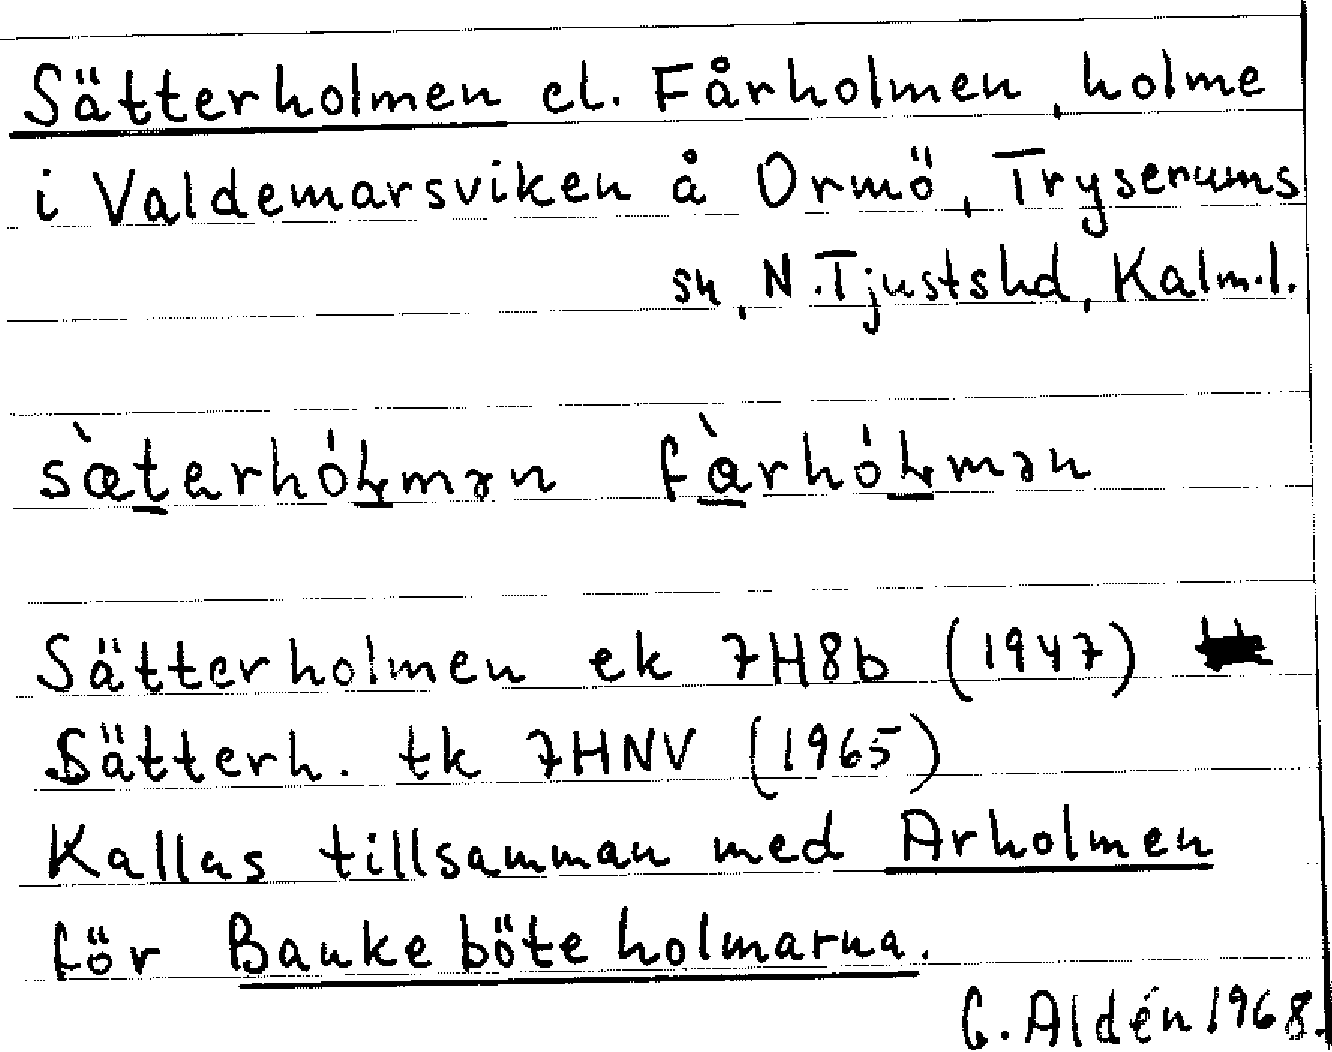 Sätterholmen el. Fårholmen, holme
i Valdemarsviken å Ormö, Tryserums
sn, N. Tjustshd, Kalm.l.
Sätterholmen ek 7H8b (1947)
Sätterh. tk 7HNV (1965)
Kallas tillsamman med Arholmen
för Bankeböteholmarna.
G. Aldén 1968.